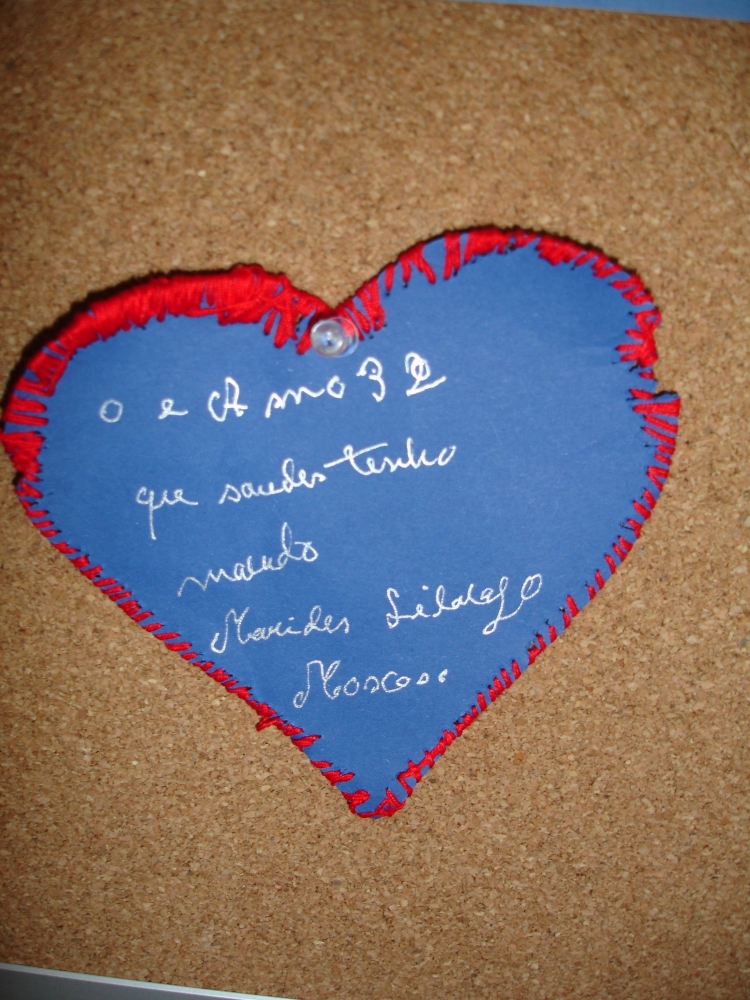 o e A mo 3 2
que saudes tenho
marido
Marides Lidalgo
Moscoso